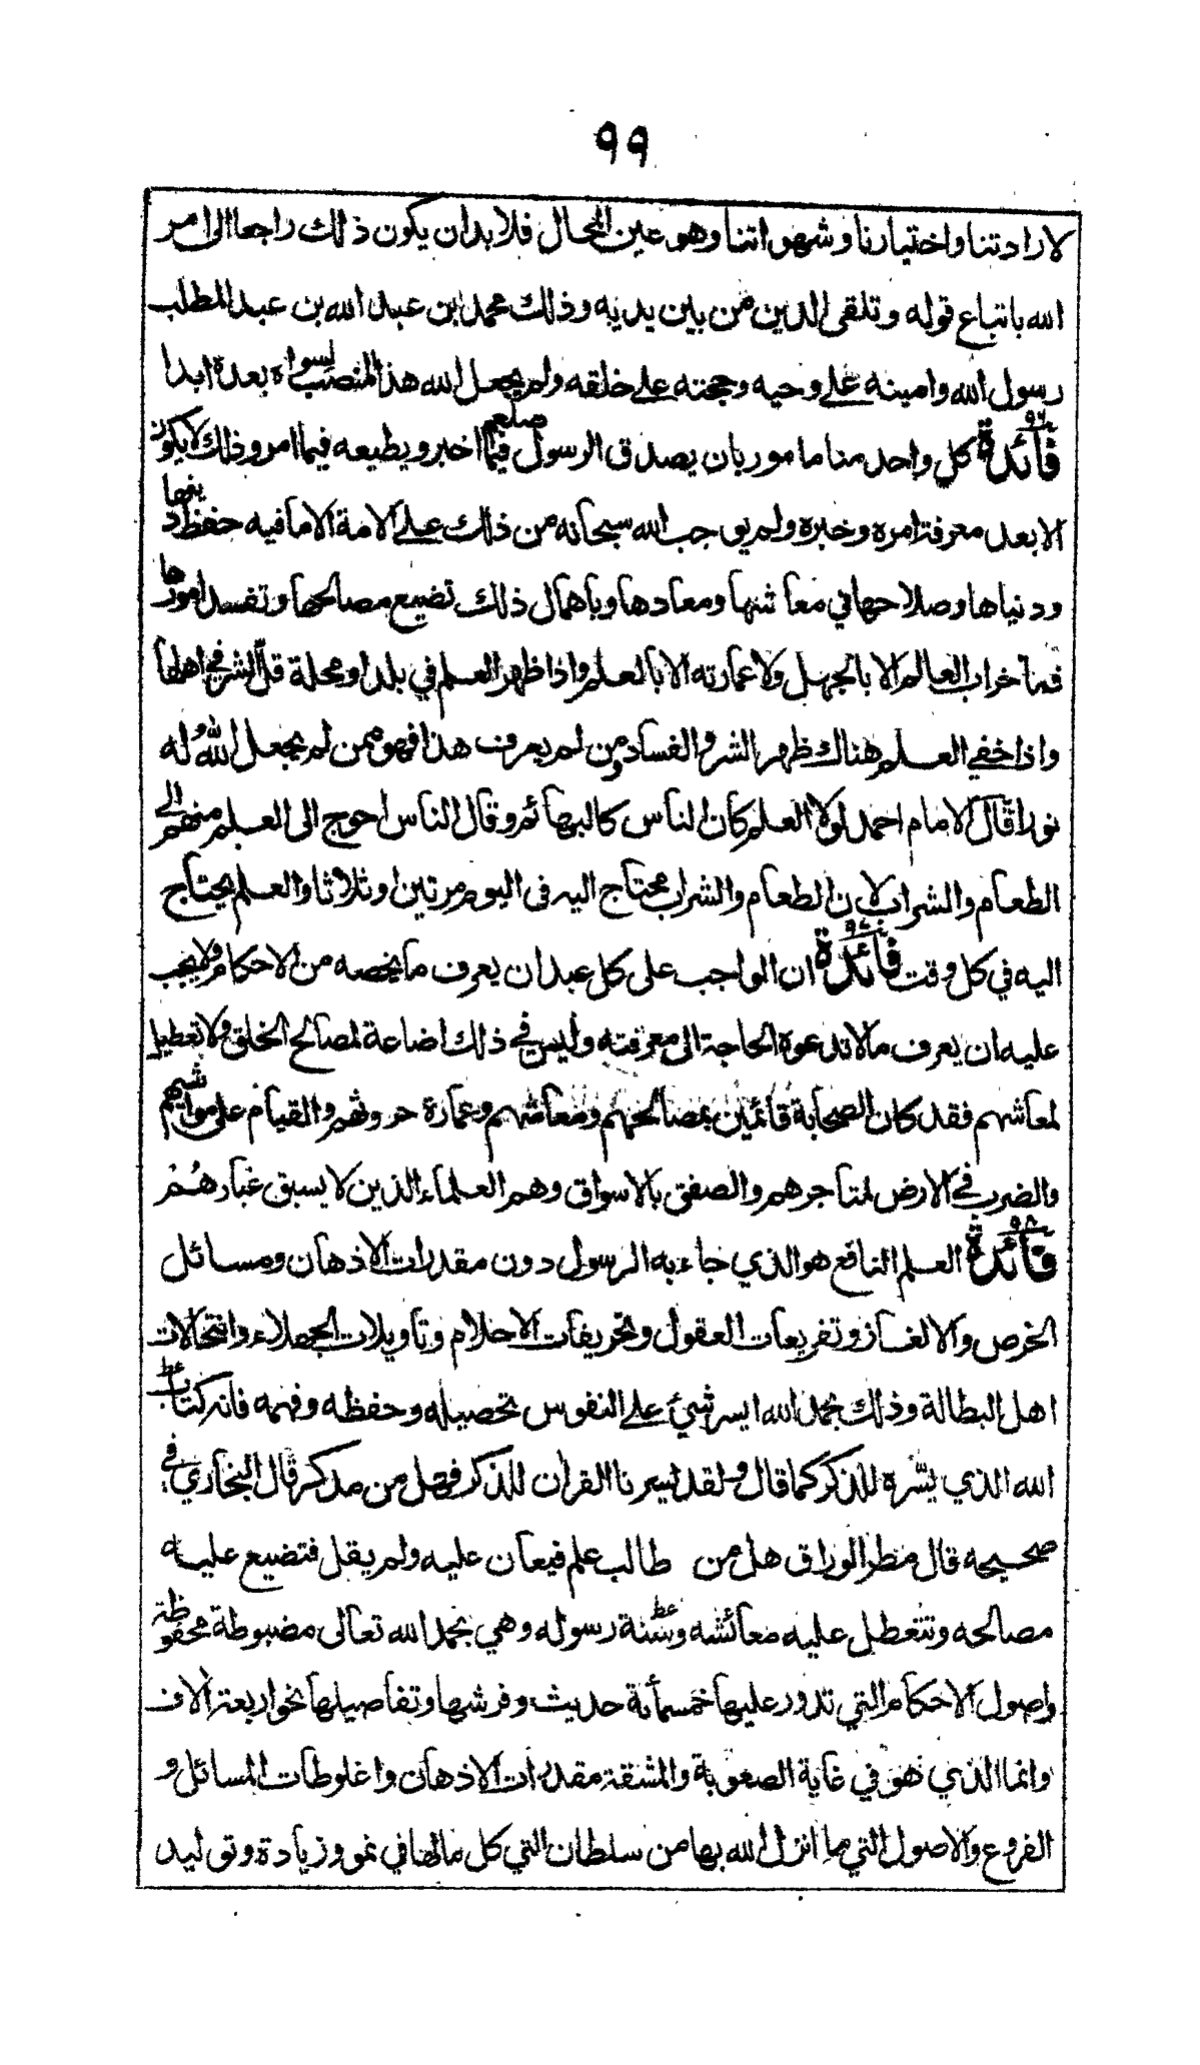 ٩٩
لارادتنا واختيارنا وشهواتنا وهو عين المحال فلا بد ان يكون ذلك راجعا الى امر
الله باتباع قوله وتلقى الدين من بين يديه وذلك محمد بن عبد الله بن عبد المطلب
رسول الله وامينه على وحيه وحجته على خلقه ولم يجعل الله هذا المنصب لسواه بعده ابدا
فائدة ٩٦ كل واحد منا مامور بان يصدق الرسول صلعم فيما اخبر ويطيعه فيما امر وذلك لا يكون
الا بعد معرفة امره وخبره ولم يوجب الله سبحانه من ذلك على الامة الا ما فيه حفظ دينها
ودنياها وصلاحها في معاشها ومعادها وباهمال ذلك تضيع مصالحها وتفسد امورها
فما خراب العالم الا بالجهل ولا عمارته الا بالعلم واذا ظهر العلم في بلد او محلة قل الشر في اهلها
واذا خفي العلم هناك ظهر الشر والفساد ومن لم يعرف هذا فهو ممن لم يجعل الله له
نورا قال الامام احمد لولا العلم كان الناس كالبهائم وقال الناس احوج الى العلم منهم الى
الطعام والشراب لان الطعام والشراب محتاج اليه فى اليوم مرتين او ثلاثا والعلم يحتاج
اليه في كل وقت فائدة ٩٧ ان الواجب على كل عبد ان يعرف ما يخصه من الاحكام ولا يجب
عليه ان يعرف ما لا تدعوه الحاجة الى معرفته وليس في ذلك اضاعة لمصالح الخلق ولا تعطيل
لمعاشهم فقد كان الصحابة قائمين بمصالحهم ومعاشهم وعمارة حروثهم والقيام على مواشيهم
والضرب في الارض لمتاجرهم والصفق بالاسواق وهم العلماء الذين لا يسبق غبارهم
فائدة ٩٨ العلم النافع هو الذي جاء به الرسول دون مقدرات الاذهان ومسائل
الخرص والالغاز وتفريعات العقول وتحريفات الاحلام وتاويلات الجهلاء وانتحالات
اهل البطالة وذلك بحمد الله ايسر شيء على النفوس تحصيله وحفظه وفهمه فانه كتاب
الله الذي يسره للذكر كما قال ولقد يسرنا القران للذكر فهل من مدكر قال البخاري في
صحيحه قال مطر الوراق هل من طالب علم فيعان عليه ولم يقل فتضيع عليه
مصالحه وتتعطل عليه معائشه وسنة رسوله وهي بحمد الله تعالى مضبوطة محفوظة
واصول الاحكام التي تدور عليها خمسمأئة حديث وفرشها وتفاصيلها نحو اربعة الاف
وانما الذي هو في غاية الصعوبة والمشقة مقدرات الاذهان واغلوطات المسائل و
الفروع والاصول التي ما انزل الله بها من سلطان التي كل مالها في نمو وزيادة وتوليد